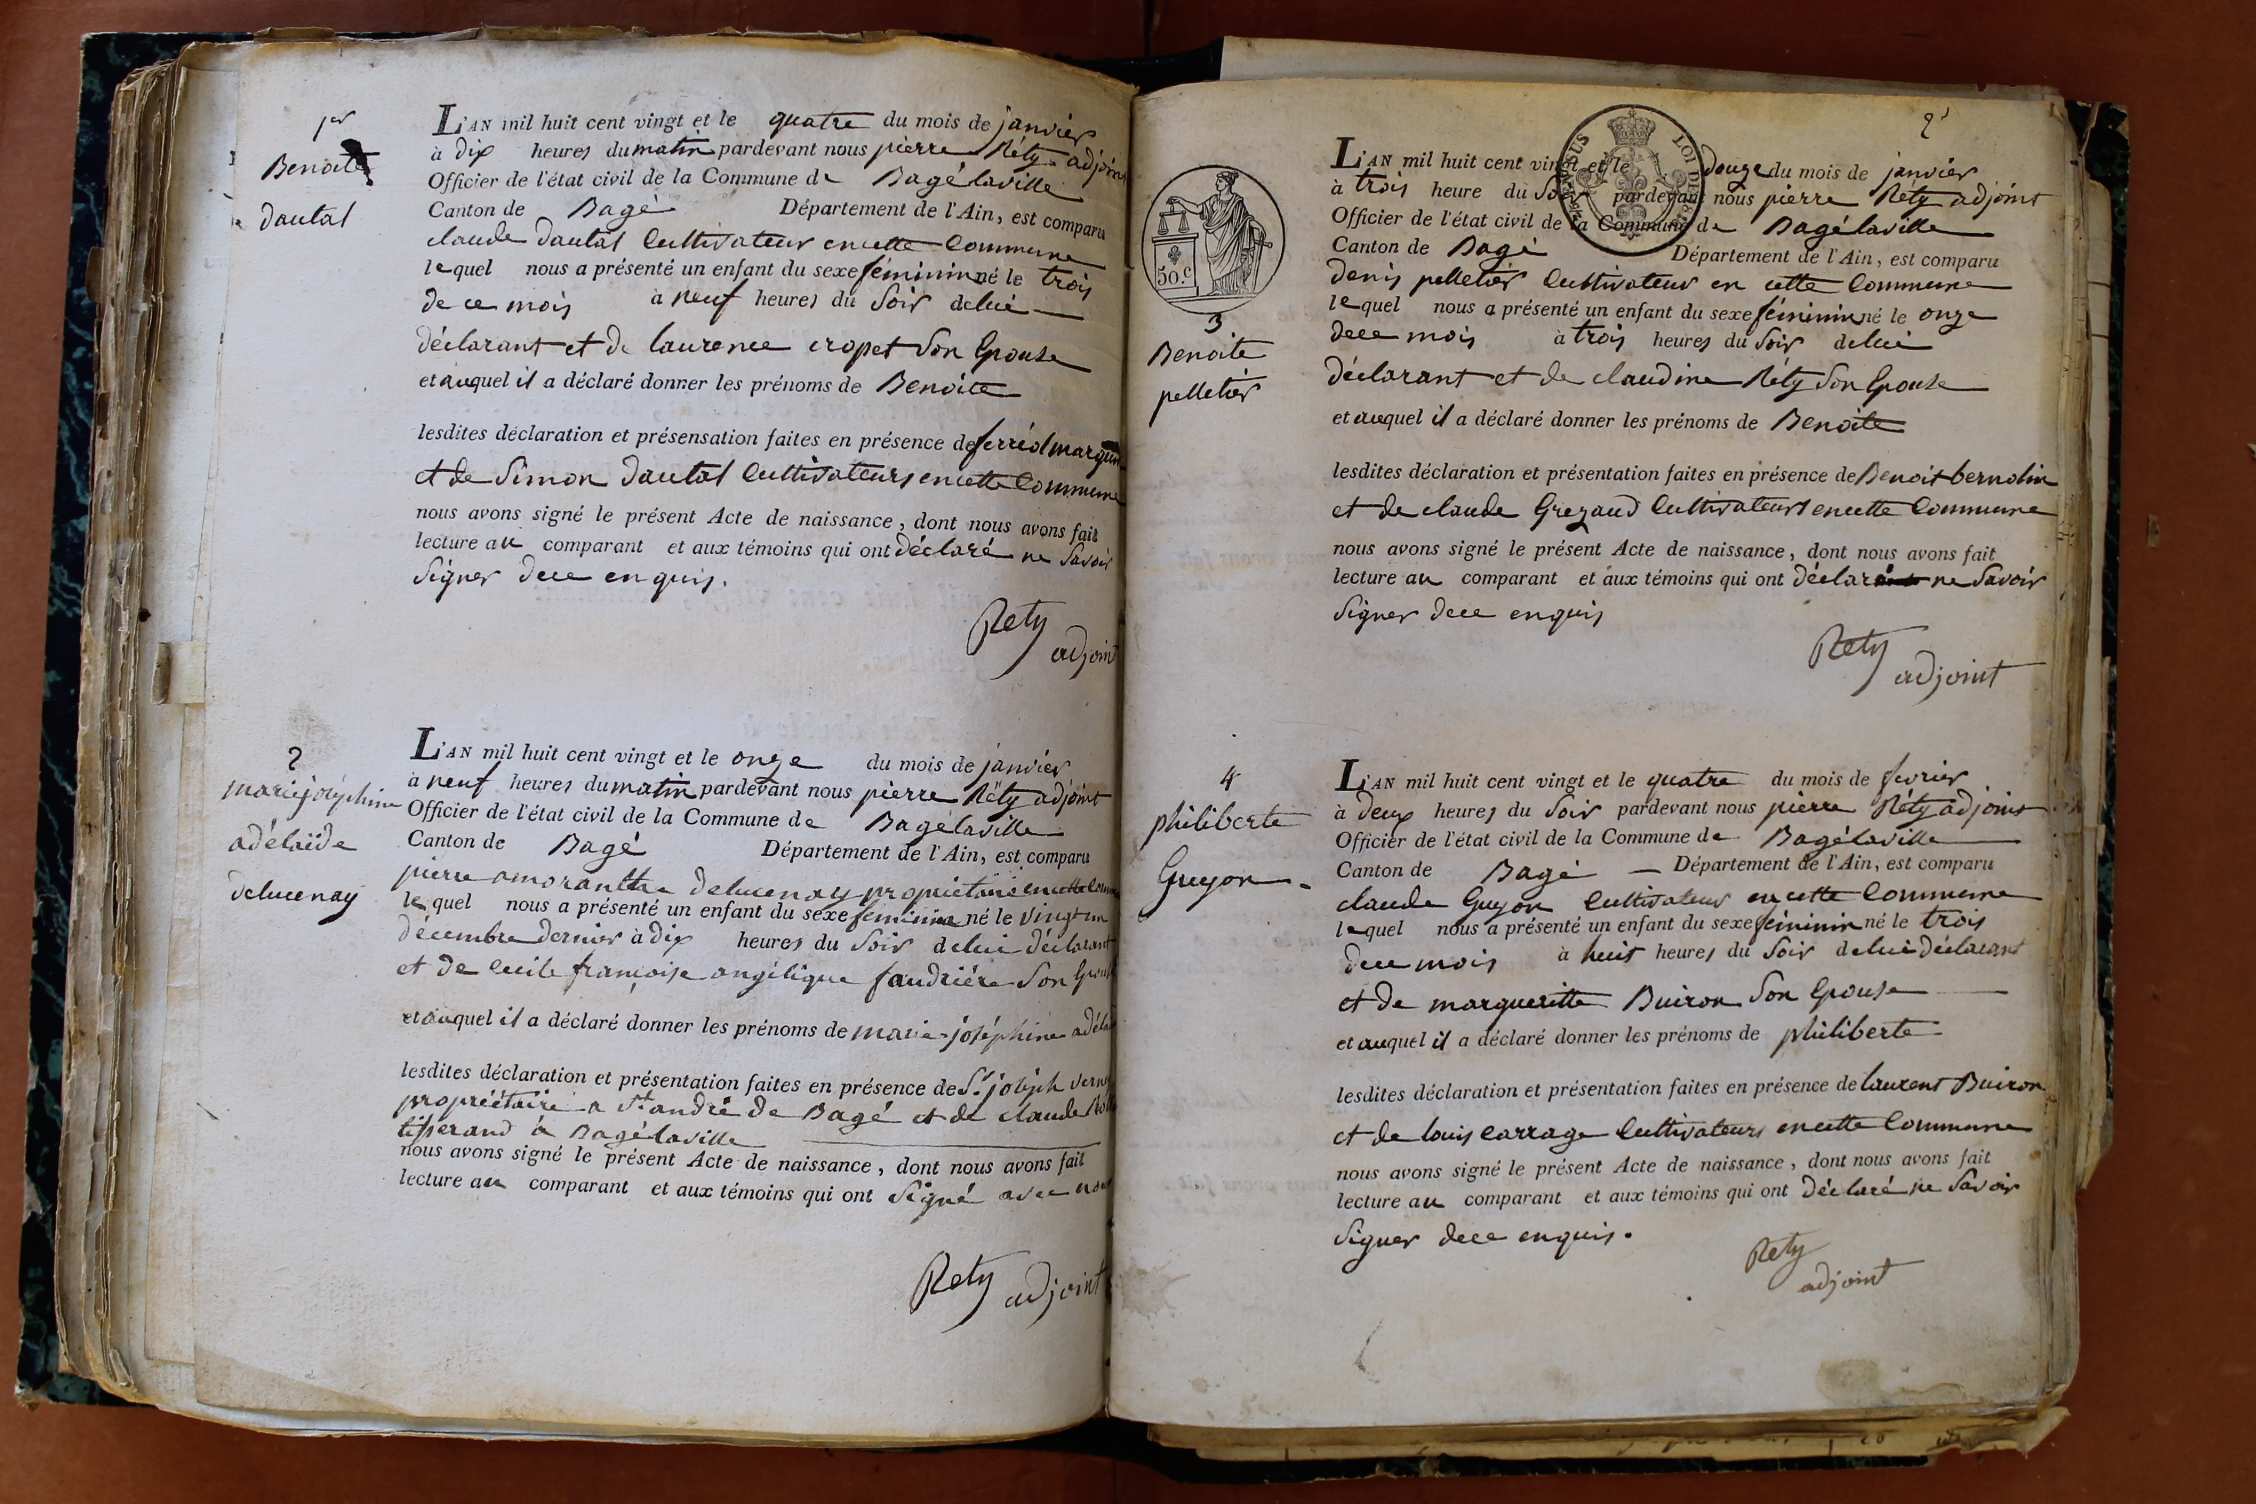 1er
Benoite
dautal
L'AN mil huit cent vingt et le quatre du mois de janvier
à dix heures du matin pardevant nous pierre Réty adjoint
Officier de l'état civil de la Commune de Bagélaville
Canton de Bagé Département de l'Ain, est comparu
claude dautal Cultivateur en cette Commune
lequel nous a présenté un enfant du sexe féminin né le trois
de ce mois à neuf heures du Soir de lui
déclarant et de laurence cropet Son Epouse
et auquel il a déclaré donner les prénoms de Benoite
lesdites déclaration et présensation faites en présence de ferréol
et de Simon dautal Cultivateurs en cette Commune
nous avons signé le présent Acte de naissance, dont nous avons fait
lecture au comparant et aux témoins qui ont déclaré ne Savoir
Signer de ce enquis.
Rety
adjoint
2
marie joséphine
adélaïde
delucenay
L'AN mil huit cent vingt et le onze du mois de janvier
à neuf heures du matin pardevant nous pierre Réty adjoint
Officier de l'état civil de la Commune de Bagélaville
Canton de Bagé Département de l'Ain, est comparu
pierre amoranthe delucenay propriétaire en cette
lequel nous a présenté un enfant du sexe féminin né le vingt un
décembre dernier à dix heures du Soir de lui déclarant
et de Cecile françoise angélique faudrière Son
et auquel il a déclaré donner les prénoms de marie-joséphine
lesdites déclaration et présentation faites en présence de Sr. joseph
propriétaire a St andré de Bagé et de claude
tisserand à Bagélaville
nous avons signé le présent Acte de naissance, dont nous avons fait
lecture au comparant et aux témoins qui ont Signé avec nous
Rety adjoint
2
LOI DE
50.c
3
Benoite
pelletier
L'AN mil huit cent vingt et le douze du mois de janvier
à trois heure du Soir pardevant nous pierre Réty adjoint
Officier de l'état civil de la Commune de Bagélaville
Canton de Bagé Département de l'Ain, est comparu
denis pelletier Cultivateur en cette Commune
lequel nous a présenté un enfant du sexe féminin né le onze
de ce mois à trois heures du Soir de lui
déclarant et de claudine Réty Son Epouse
et auquel il a déclaré donner les prénoms de Benoite
lesdites déclaration et présentation faites en présence de Benoit bernolin
et de claude Grezaud Cultivateurs en cette Commune
nous avons signé le présent Acte de naissance, dont nous avons fait
lecture au comparant et aux témoins qui ont déclaré ne Savoir
Signer de ce enquis
Rety
adjoint
4
philiberte
Guyon
L'AN mil huit cent vingt et le quatre du mois de fevrier
à deux heures du Soir pardevant nous pierre Réty adjoint
Officier de l'état civil de la Commune de Bagélaville
Canton de Bagé Département de l'Ain, est comparu
claude Guyon Cultivateur en cette Commune
lequel nous a présenté un enfant du sexe féminin né le trois
de ce mois à huit heures du Soir de lui déclarant
et de margueritte Buiron Son Epouse
et auquel il a déclaré donner les prénoms de philiberte
lesdites déclaration et présentation faites en présence de laurent Buiron
et de louis Carrage Cultivateurs en cette Commune
nous avons signé le présent Acte de naissance, dont nous avons fait
lecture au comparant et aux témoins qui ont déclaré ne Savoir
Signer de ce enquis.
Rety
adjoint